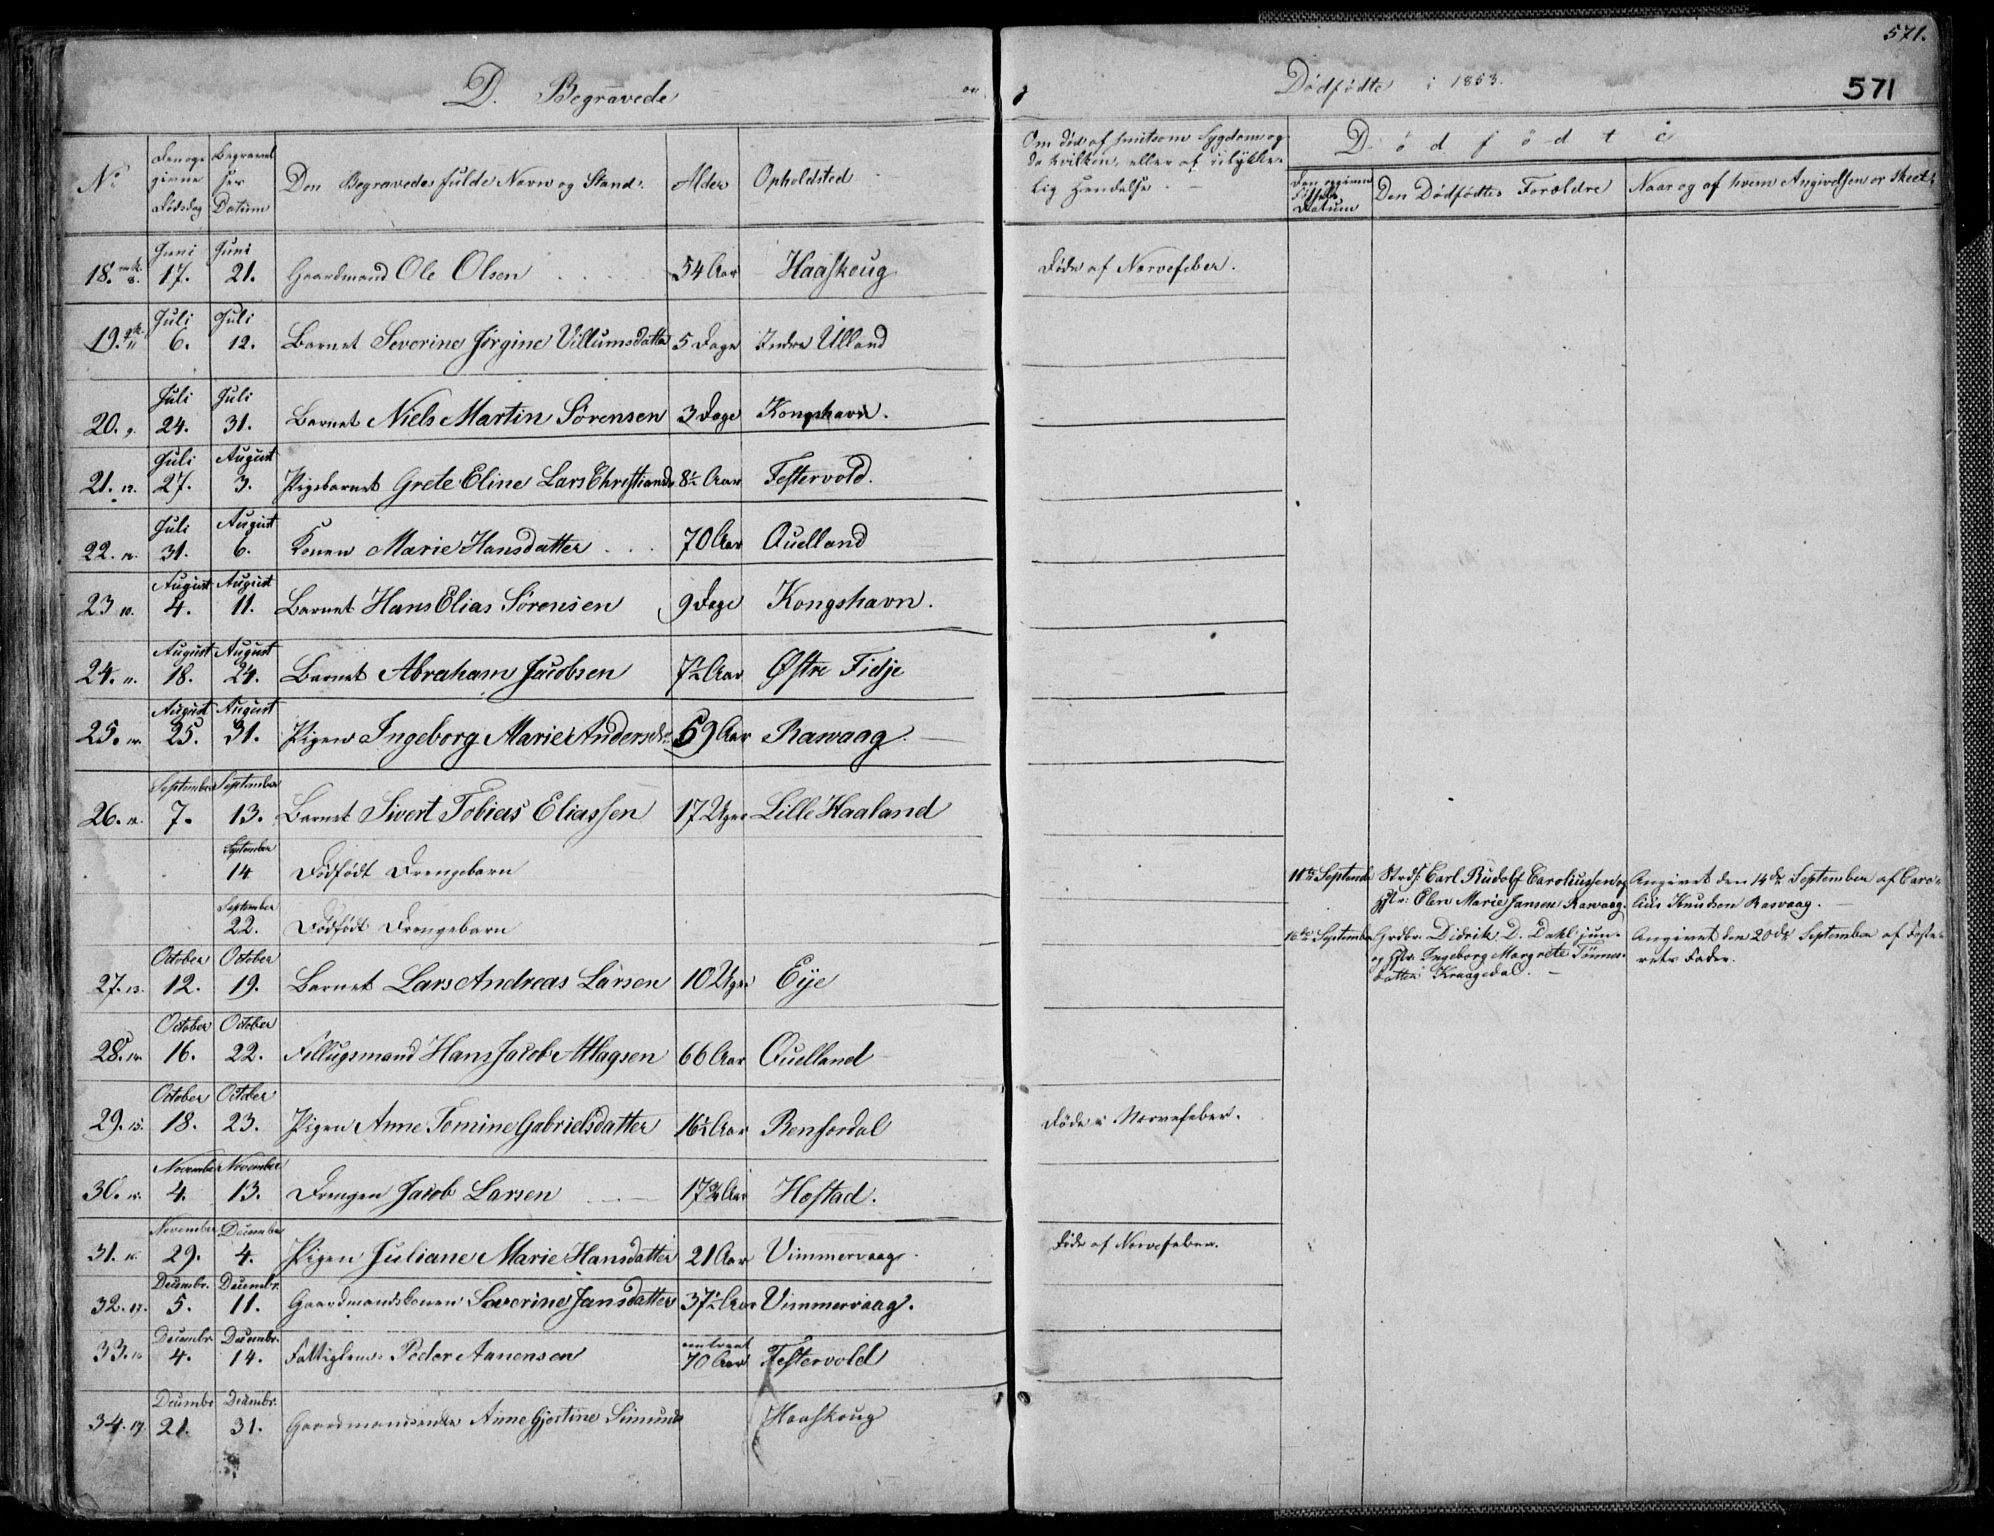 571.
571
D. Begravede og Dødfødte i 1853.
No
Den opgivne Dødsdag
Begravelses Datum
Den Begravedes fulde Navn og Stand.
Alder
Opholdsted
Om død af smitsom Sygdom og da hvilken, eller af ulykkelig Hendelse.
Dødfødte
Datum
Den Dødfødtes Forældre
Naar og af hvem Angivelsen er skeet.
18. 8. Juni 17. Juni 21. Gaardmand Ole Olsen 54 Aar Haaskoug Døde af Nervefeber.
19. Juli 6. Juli 12. Barnet Severine Jörgine Villumsdatter 5 Dage Indre Ulland
20. 9. Juli 24. Juli 31. Barnet Niels Martin Sörensen 3 Dage Kongshavn.
21. 12. Juli 27. August 3. Pigebarnet Grete Eline Lars Christiansd 8½ Aar Festervold.
22. Juli 31. August 6. Konen Marie Hansdatter 70 Aar Quelland
23 10. August 4. August 11. Barnet Hans Elias Sörensen 9 Dage Kongshavn.
24. 11. August 18. August 24. Barnet Abraham Jacobsen 7½ Aar Østre Tidje
25. August 25. August 31. Pigen Ingeborg Marie Andersdr. 59 Aar Rasvaag.
26. 12. September 7. September 13. Barnet Sivert Tobias Eliassen 17 Uger Lille Haaland
September 14 Dödfödt Drengebarn
11te September Strdf. Carl Rudolf Caroliussen og Angivet den 14de September af Caro-
Hstr: Olene Marie Jansen Rasvaag. lius Knudsen Rasvaag.
September 22. Dödfödt Drengebarn
16de September Grdbr. Didrik D. Dahl jun. Angivet den 20de September af Foste-
og Hstr. Ingeborg Margrete Tönnes- rets Fader.
datter Kraagedal.
27. 13. October 12. October 19. Barnet Lars Andreas Larsen 10 Uger Eije
28. 14. October 16. October 22. Fillugsmand Hans Jacob Atlagsen 66 Aar Quelland
29. 15. October 18. October 23. Pigen Anne Tomine Gabrielsdatter 16½ Aar Rensfordal Døde i Nervefeber.
30. 15. November 4. November 13. Drengen Jacob Larsen 17¾ Aar Hostad.
31. 16. November 29. December 4. Pigen Juliane Marie Hansdatter 21 Aar Vimmervaag Døde af Nervefeber.
32. 17. Decembr. 5. Decembr. 11. Gaardmandskonen Severine Jansdatter 37½ Aar Vimmervaag.
33. Decembr. 4. Decembr. 14. Fattiglem Peder Aanensen omtrent 70 Aar Festervold
34. 19. Decembr 21. Decembr. 31. Gaardmandsenke Anne Gjertine Simunds Haaskoug